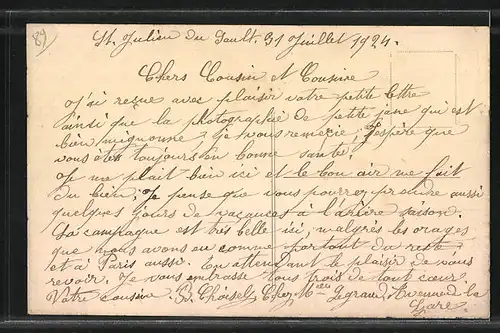 89
St. Julien du Sault. 31 Juillet 1924.
Chers Cousin et Cousine
J'ai reçue avec plaisir votre petite lettre
ainsi que la photographie de petite jane qui est
bien mignonne, je vous remercie, J'espère que
vous êtes toujours en bonne santé;
Je me plait bien ici et le bon air me fait
du bien; Je pense que vous pourrez prendre aussi
quelques jours de vacances à l'arière saison.
La campagne est très belle ici, malgrès les orages
que nous avons eu comme partout du reste
et à Paris aussi. En attendant le plaisir de vous
revoir. Je vous embrasse tous trois de tout cœur
Votre cousine B. Choisel, Chez Mme Legrand, Avenue de la
Gare.